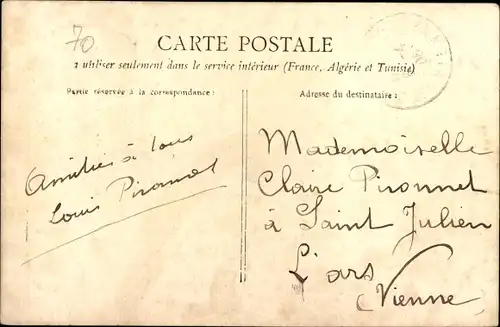 70
CARTE POSTALE
à utiliser seulement dans le service intérieur (France, Algérie et Tunisie)
Partie réservée à la correspondance :
Adresse du destinataire :
Amitiés à tous
Louis Pironnet
Mademoiselle
Claire Pironnet
à Saint Julien
L'ars
(Vienne)